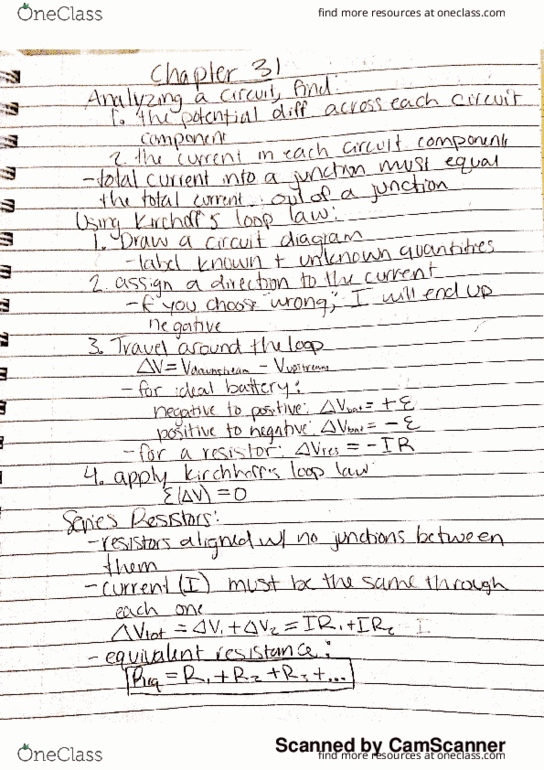 OneClass
find more resources at oneclass.com
Chapter 31
Analyzing a circuit, find:
1. the potential diff across each circuit
component
2. the current in each circuit component
-total current into a junction must equal
the total current out of a junction
Using Kirchoff's loop law:
1. Draw a circuit diagram
-label known + unknown quantities
2. assign a direction to the current
-if you choose wrong, I will end up
negative
3. Travel around the loop
ΔV = Vdownstream - Vupstream
-for ideal battery:
negative to positive: ΔVbat = +ε
positive to negative: ΔVbat = -ε
-for a resistor: ΔVres = -IR
4. apply Kirchhoff's loop law
Σ(ΔV) = 0
Series Resistors:
-resistors aligned w/ no junctions between
them
-current (I) must be the same through
each one
ΔVtot = ΔV1 + ΔV2 = IR1 + IR2
-equivalent resistance:
Req = R1 + R2 + R3 + ...
Scanned by CamScanner
OneClass
find more resources at oneclass.com